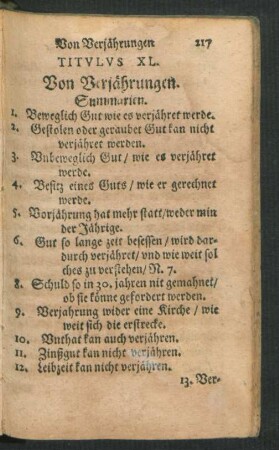 Von Verjährungen 217
TITVLVS XL.
Von Verjährungen.
Summarien.
1. Beweglich Gut wie es verjähret werde.
2. Gestolen oder geraubet Gut kan nicht
verjähret werden.
3. Vnbeweglich Gut / wie es verjähret
werde.
4. Besitz eines Guts / wie er gerechnet
werde.
5. Vorjährung hat mehr statt / weder min
der Jährige.
6. Gut so lange zeit besessen / wird dar-
durch verjähret / vnd wie weit sol
ches zu verstehen / N. 7.
8. Schuld so in 30. jahren nit gemahnet /
ob sie könne gefordert werden.
9. Verjahrung wider eine Kirche / wie
weit sich die erstrecke.
10. Vnthat kan auch verjähren.
11. Zinßgut kan nicht verjähren.
12. Leibzeit kan nicht verjähren.
13. Ver-